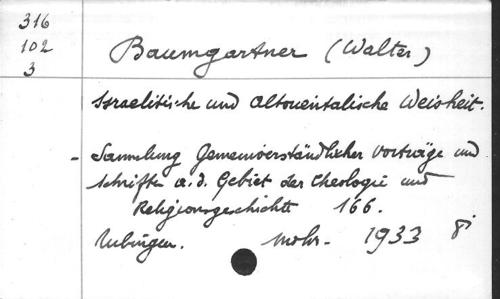 316
102
3
Baumgartner (Walter)
Israelitische und Altorientalische Weisheit.
- Sammlung Gemeinverständlicher Vorträge und
Schriften a. d. Gebiet der Theologie und
Religionsgeschichte 166.
Tubingen. Mohr. 1933 8°